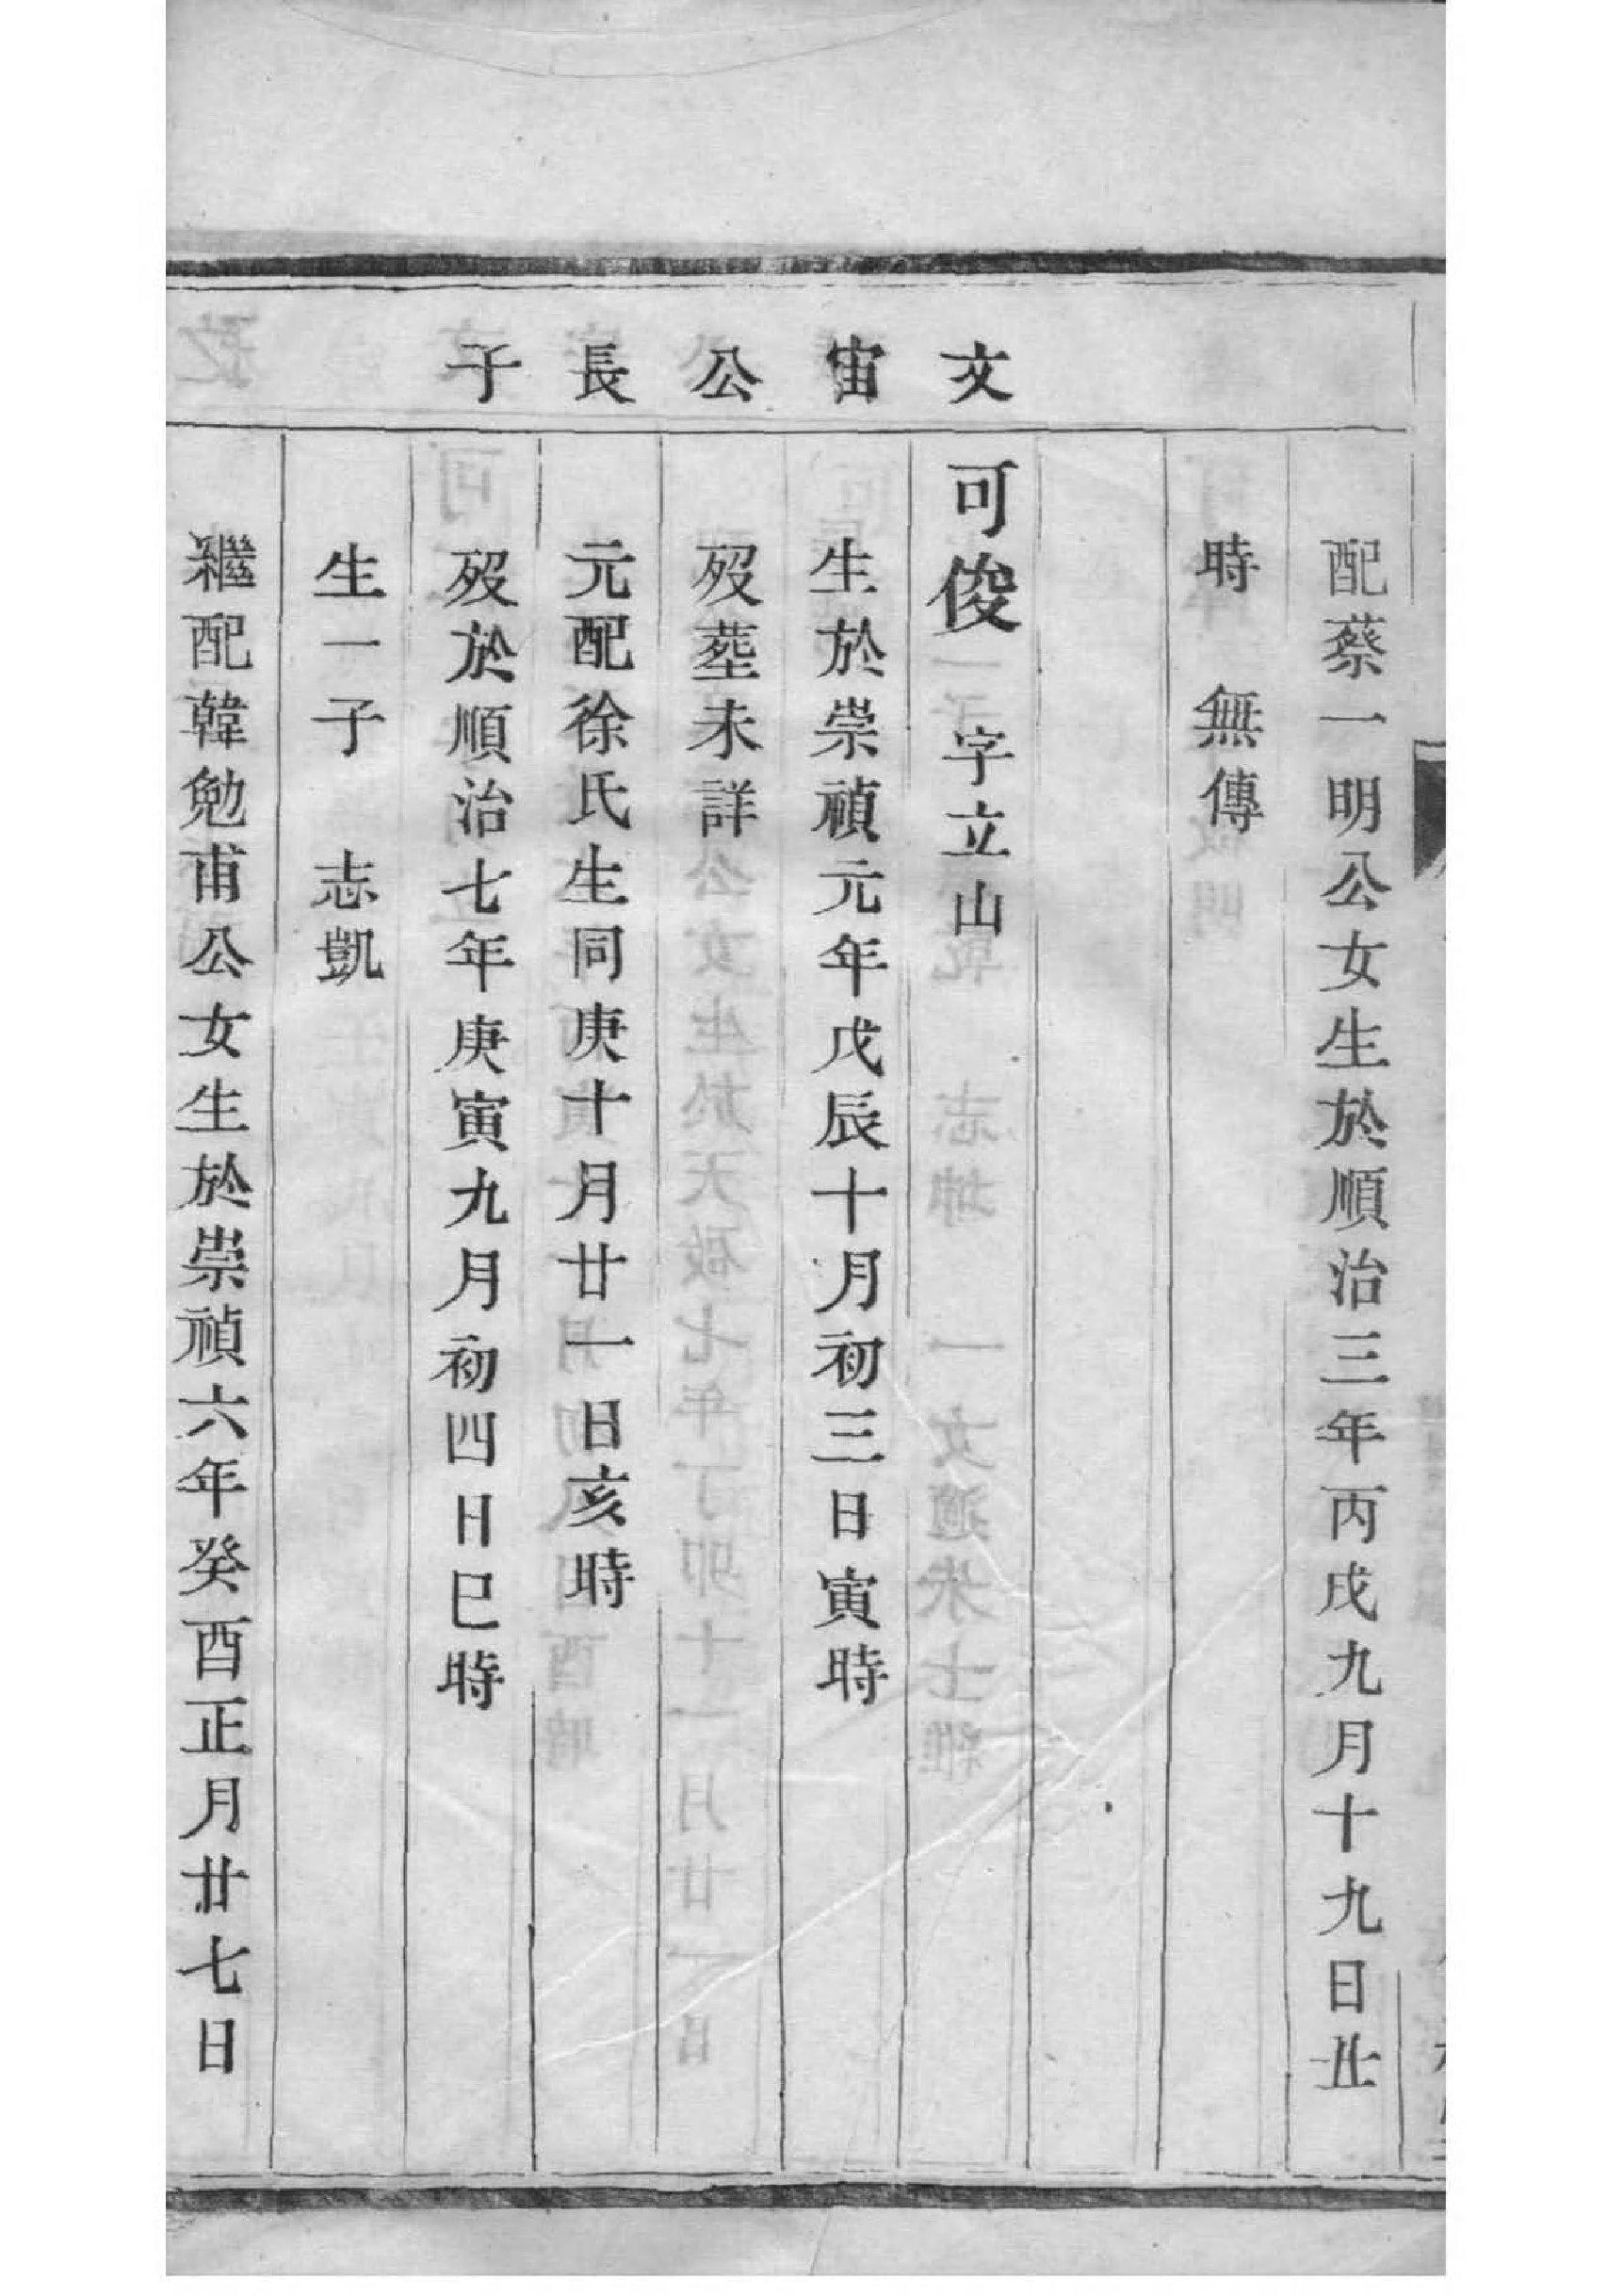 配蔡一明公女生於順治三年丙戌九月十九日丑
時 無傳
文宙公長子
可俊 字立山
生於崇禎元年戊辰十月初三日寅時
歿塟未詳
元配徐氏生同庚十月廿一日亥時
歿於順治七年庚寅九月初四日巳時
生一子 志凱
繼配韓勉甫公女生於崇禎六年癸酉正月廿七日